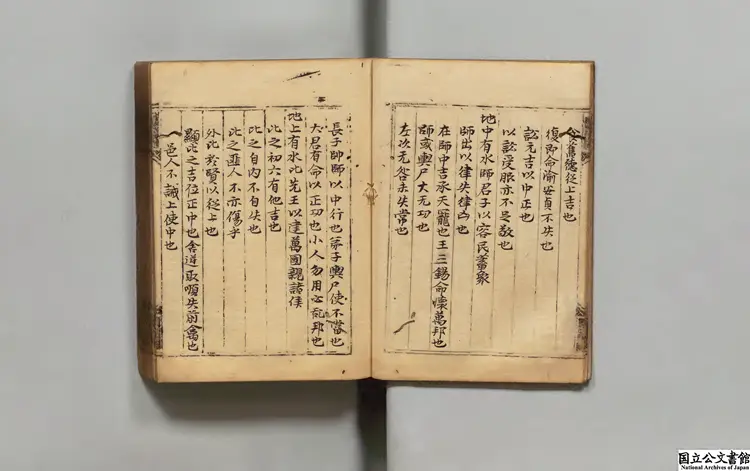 食舊德從上吉也
復即命渝安貞不失也
訟元吉以中正也
以訟受服亦不足敬也
地中有水師君子以容民畜衆
師出以律失律凶也
在師中吉承天寵也王三錫命懷萬邦也
師或輿尸大无功也
左次无咎未失常也
長子帥師以中行也弟子輿尸使不當也
大君有命以正功也小人勿用必亂邦也
地上有水比先王以建萬國親諸侯
比之初六有他吉也
比之自内不自失也
比之匪人不亦傷乎
外比於賢以從上也
顯比之吉位正中也舍逆取順失前禽也
邑人不誡上使中也
国立公文書館
National Archives of Japan